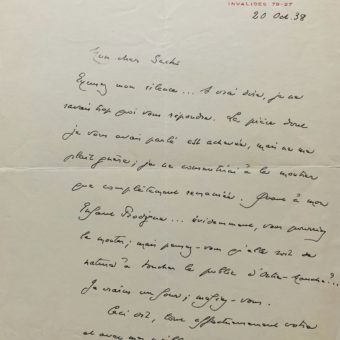 INVALIDES 79-27
20 Oct. 38
Mon cher Sachs
Excusez mon silence... A vrai dire, je ne
savais trop quoi vous répondre. La pièce dont
je vous avais parlé est achevée, mais ne me
plaît guère; je ne consentirai à la montrer
que complètement remaniée. Quant à mon
Enfant Prodigue... évidemment, vous pourriez
la monter; mais pensez-vous qu'elle soit de
nature à toucher le public d'Outre-Manche?...
Je viens un jour; voyez-vous.
Ceci dit, bien affectueusement votre
et avec